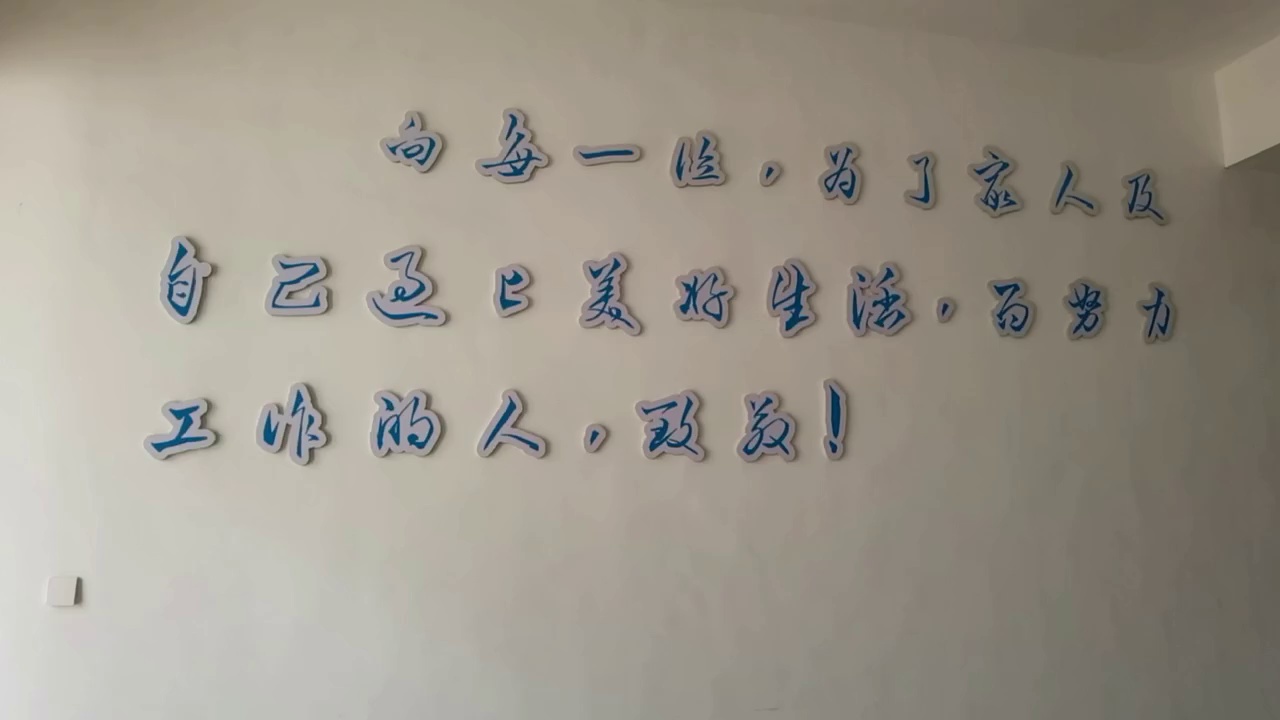 向每一位，为了家人及
自己过上美好生活，而努力
工作的人，致敬！